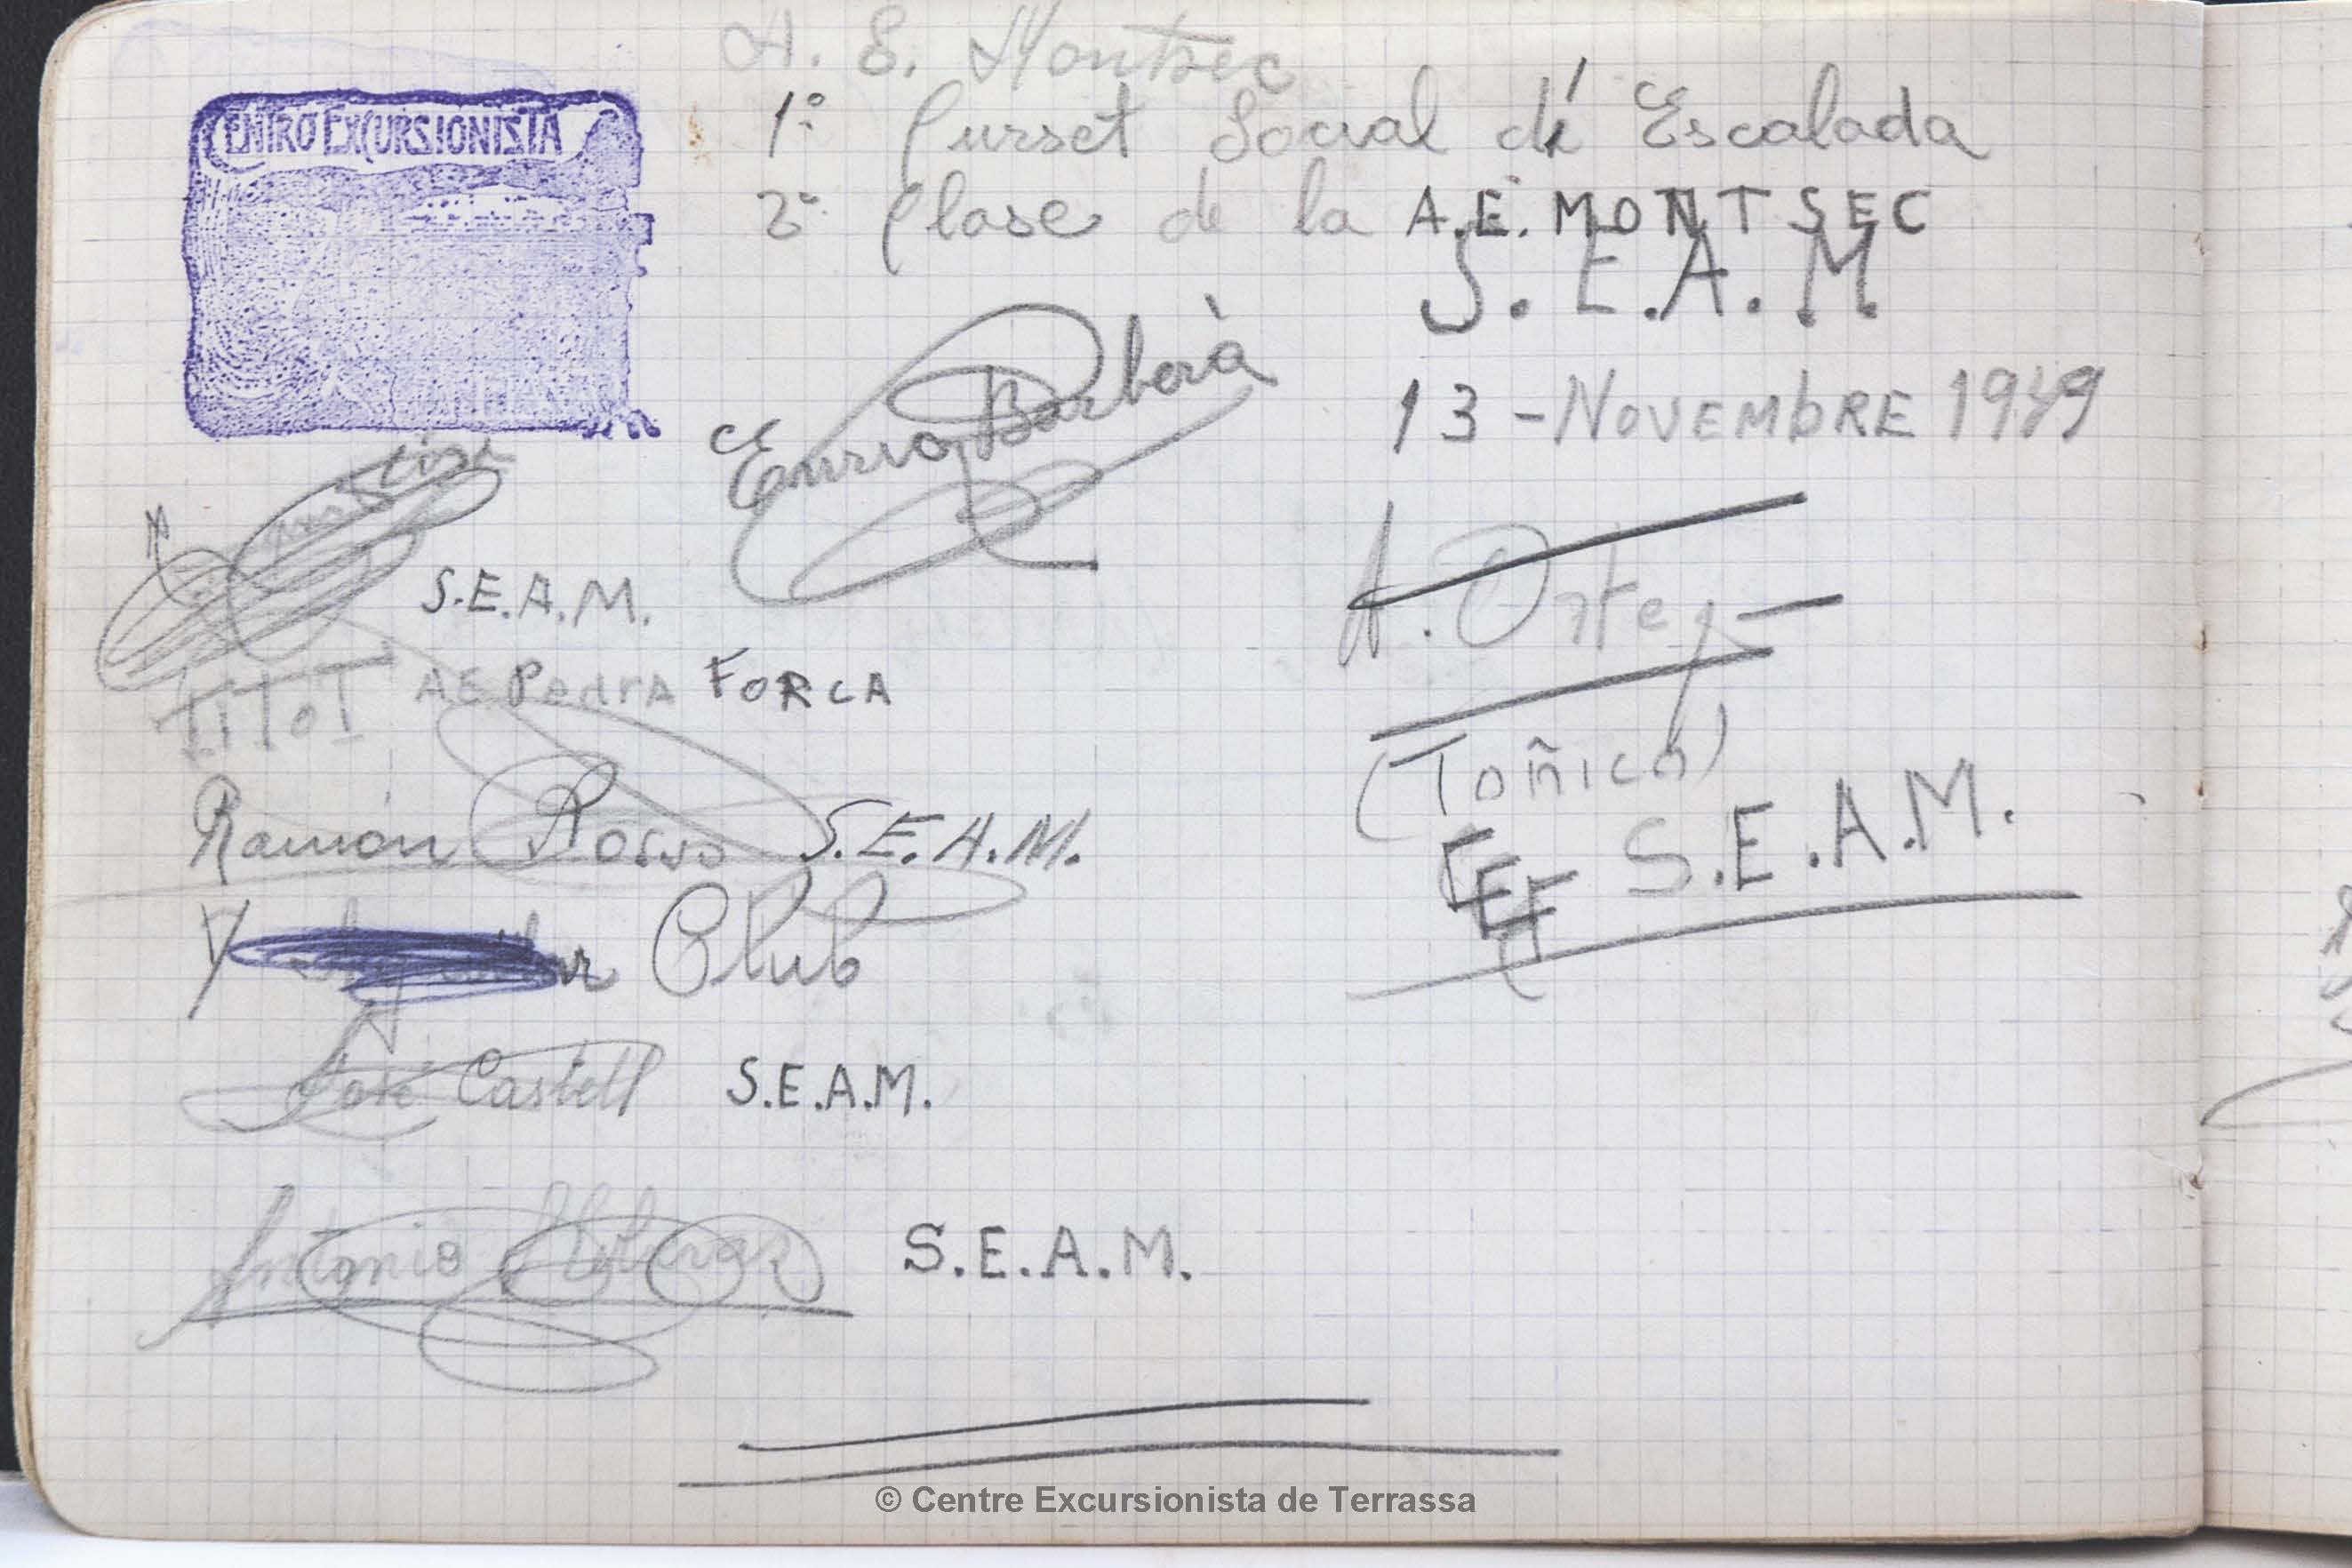 A. E. Montsec
1º Curset Social d'Escalada
2ª Clase de la A.E. MONTSEC
S. E. A. M
13 - NOVEMBRE 1949
CENTRO EXCURSIONISTA
Enric Barberà
S.E.A.M.
A. Orteg
(Toñico)
S.E.A.M.
TITOT AE Pedra FORCA
Ramón S.E.A.M.
Club
José Castell S.E.A.M.
Antonio S.E.A.M.
© Centre Excursionista de Terrassa